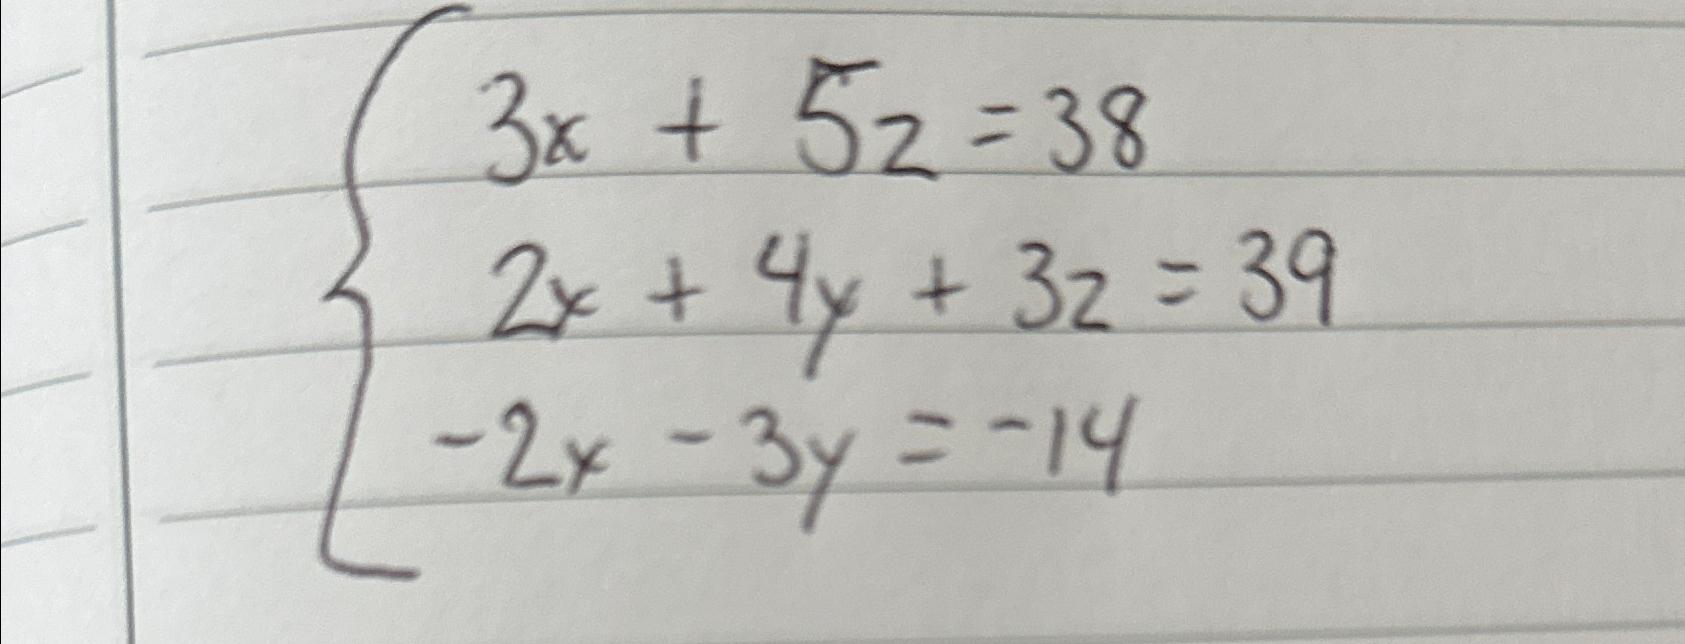 3x + 5z = 38
2x + 4y + 3z = 39
-2x - 3y = -14